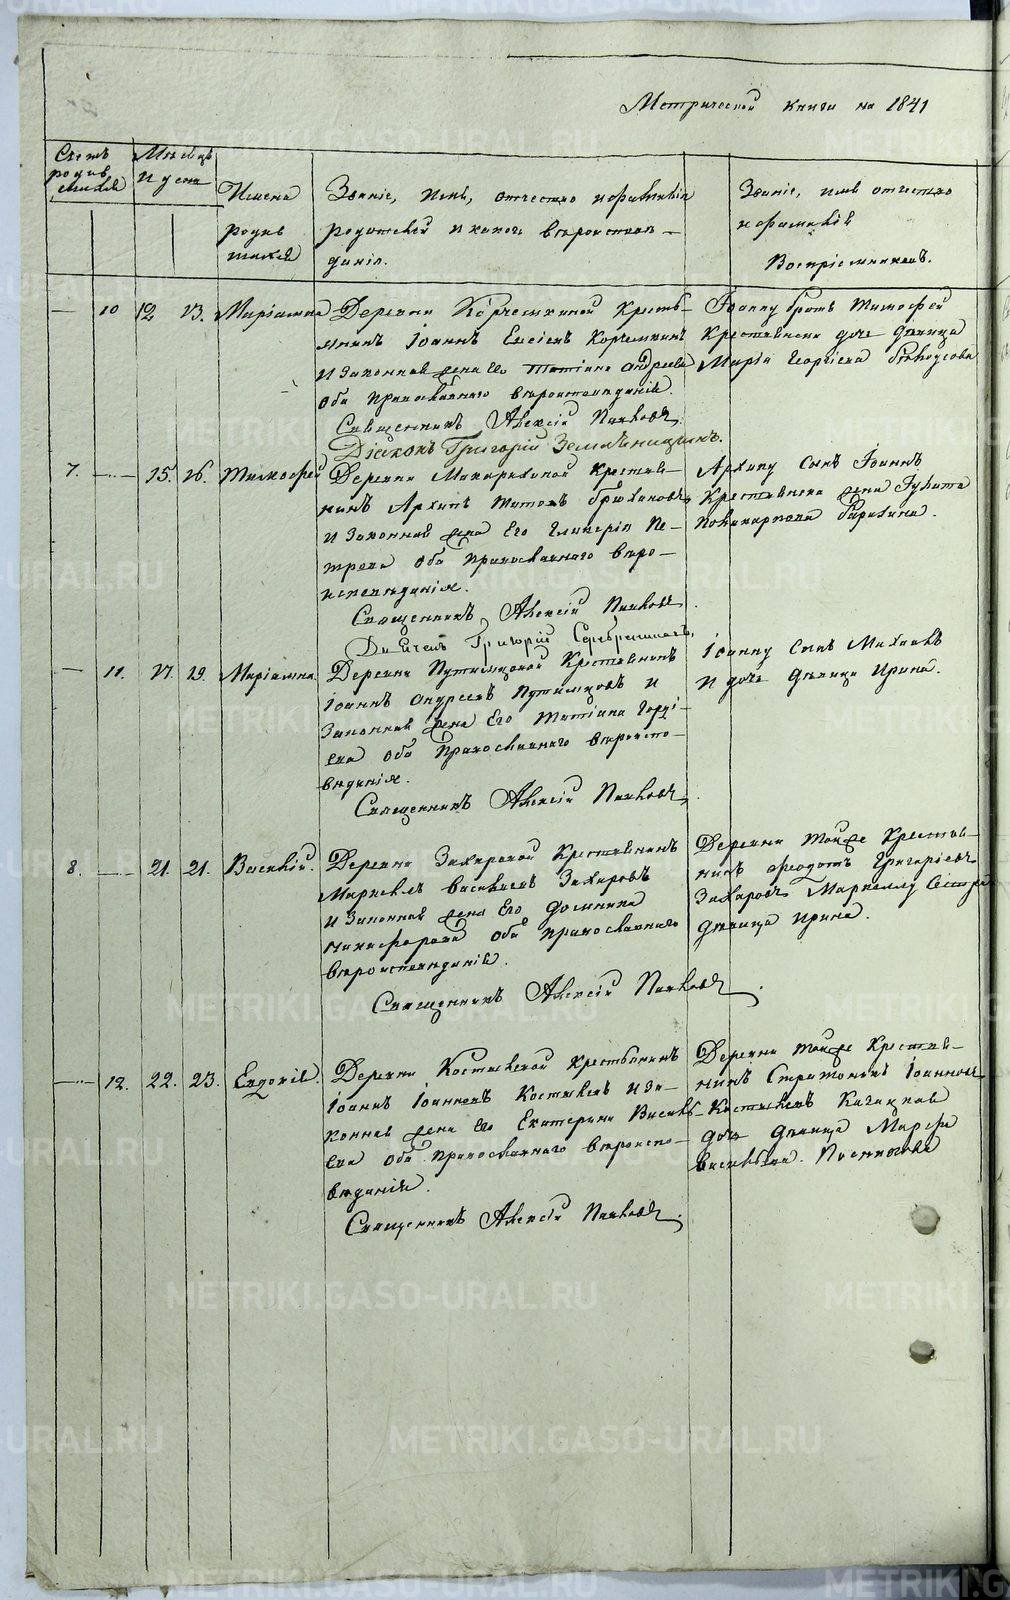 Метрической книги на 1841
Счетъ родив
шихся
Мѣсяцъ
и день
Имена
родив
шихся
Званіе, имя, отчество и фамилія
родителей и какого вѣроисповѣ-
данія.
Званіе, имя отчество
и фамилія
Воспріемниковъ.
— 10 12 13. Маріамна
Деревни Крестья
янинъ Іоаннъ Елисѣевъ
и законная жена его Татіана Андреева
оба Православнаго вѣроисповѣданія.
Священникъ Алексій Поповъ
Діаконъ Григорій Земляницынъ.
Іоанну братъ Тимофей
Крестьянска дочь дѣвица
Марія Георгіева Бѣлоусова
7. — 15. 16. Тимофей
Деревни Макарихиной Крестья-
нинъ Архипъ Титовъ Брюхановъ
и законная жена Его Гликерія Пе-
трова оба Православнаго вѣро-
исповѣданія.
Священникъ Алексій Поповъ.
Дьячекъ Григорій Серебрениковъ.
Архипу сынъ Іоаннъ
Крестьянска жена Улита
Поликарпова
— 11. 17. 19. Маріамна.
Деревни Путимцовой Крестьянинъ
Іоаннъ Андреевъ Путимцовъ и
Законная жена Его Татіана Горді-
ева оба Православнаго вѣроиспо-
вѣданія.
Священникъ Алексій Поповъ
Іоанну сынъ Михаилъ
и дочь дѣвица Ирина.
8. — 21. 21. Василій.
Деревни Захаровой Крестьянинъ
Маркелъ Васильевъ Захаровъ
и Законная жена Его Домника
Никифорова оба Православнаго
вѣроисповѣданія.
Священникъ Алексій Поповъ.
Деревни тойже Крестья-
нинъ Федотъ Григорьевъ
Захаровъ Маркеллу Сестра
дѣвица Ирина.
— 12. 22. 23. Евдокія.
Деревни Костылевой Крестьянинъ
Іоаннъ Іоанновъ Костылевъ и за-
конная жена Его Екатерина Василь-
ева оба Православнаго вѣроиспо-
вѣданія.
Священникъ Алексій Поповъ.
Деревни тойже Крестья-
нинъ Стратоникъ Іоанновъ
Костылевъ Казацкая
дочь дѣвица Марфа
Васильева. Постникова
METRIKI.GASO-URAL.RU